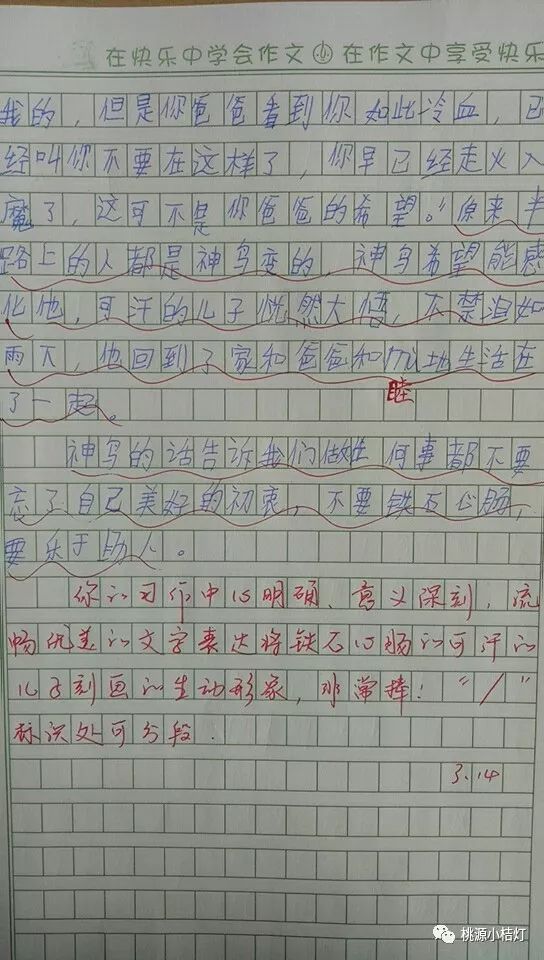 在快乐中学会作文 在作文中享受快乐
我的，但是你爸爸看到你如此冷血，已
经叫你不要在这样了，你早已经走火入
魔了，这可不是你爸爸的希望。”原来半
路上的人都是神鸟变的，神鸟希望能感
化他，可汗的儿子恍然大悟，不禁泪如
雨下，他回到了家和爸爸和mu地生活在
睦
了一起。
神鸟的话告诉我们做任何事都不要
忘了自己美好的初衷，不要铁石心肠，
要乐于助人。
你的习作中心明确、意义深刻，流
畅优美的文字表达将铁石心肠的可汗的
儿子刻画的生动形象，非常棒！“/”
标识处可分段.
3.14
桃源小桔灯